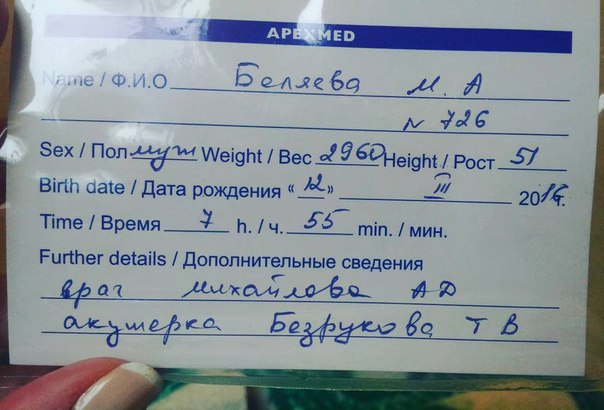 APEXMED
Name / Ф.И.О Беляева М. А
N 726
Sex / Пол муж Weight / Вес 2960 Height / Рост 51
Birth date / Дата рождения « 12 » III 2016г.
Time / Время 7 h. / ч. 55 min. / мин.
Further details / Дополнительные сведения
врач Михайлова АД
акушерка Безрукова Т В